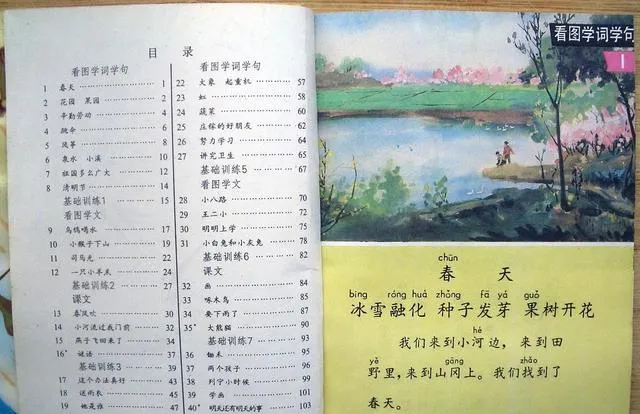 目 录
看图学词学句
1 春天 ………… 1
2 花园 果园 ………… 2
3 辛勤劳动 ………… 4
4 跳伞 ………… 6
5 风筝 ………… 8
6 泉水 小溪 ………… 10
7 祖国多么广大 ………… 12
8 清明节 ………… 14
基础训练1 ………… 15
看图学文
9 乌鸦喝水 ………… 17
10 小猴子下山 ………… 19
11 司马光 ………… 22
12 一只小羊羔 ………… 24
基础训练2 ………… 27
课文
13 春风吹 ………… 30
14 小河流过我门前 ………… 32
15 燕子飞回来了 ………… 34
16* 谜语 ………… 37
基础训练3 ………… 39
17 这个办法真好 ………… 43
18 送雨衣 ………… 45
19 她是谁 ………… 47
22 大象 起重机 ………… 57
23 虹 ………… 58
24 蔬菜 ………… 60
25 庄稼的好朋友 ………… 62
26 努力学习 ………… 64
27 讲究卫生 ………… 65
基础训练5 ………… 67
看图学文
28 小八路 ………… 70
29 王二小 ………… 72
30 明明上学 ………… 75
31 小白兔和小灰兔 ………… 78
基础训练6 ………… 82
课文
32 画 ………… 84
33 啄木鸟 ………… 85
34 要下雨了 ………… 87
35* 大熊猫 ………… 90
基础训练7 ………… 93
36 锄禾 ………… 95
37 两个孩子 ………… 96
38 列宁小时候 ………… 99
39 学画 ………… 101
40* 明天还有明天的事 ………… 103
看图学词学句
1
chūn
春 天
bīng róng huà zhǒng fā yá guǒ
冰雪融化 种子发芽 果树开花
hé
我们来到小河边，来到田
yě gāng zhǎo
野里，来到山冈上。我们找到了
春天。